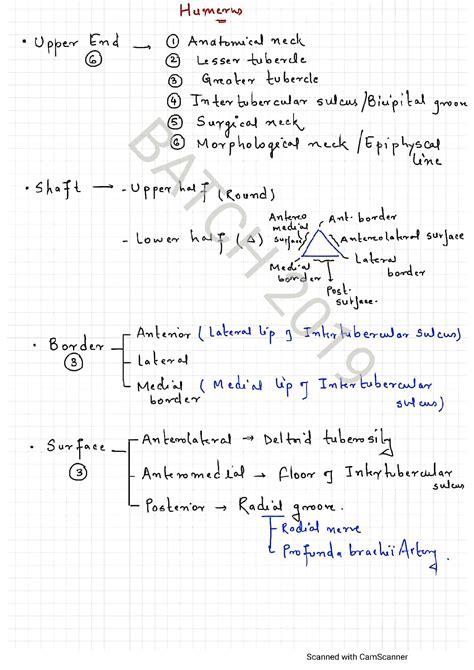 Humerus
• Upper End → ① Anatomical neck
⑥ ② Lesser tubercle
③ Greater tubercle
④ Intertubercular sulcus/Bicipital groove
⑤ Surgical neck
⑥ Morphological neck /Epiphyseal line
• Shaft → - Upper half (Round)
- Lower half (△)
Antero medial surface
Ant. border
Anterolateral surface
Medial border
Lateral border
Post. surface.
• Border ③
- Anterior (Lateral lip of Intertubercular sulcus)
- Lateral
- Medial border (Medial lip of Intertubercular sulcus)
• Surface ③
- Anterolateral → Deltoid tuberosity
- Anteromedial → Floor of Intertubercular sulcus
- Posterior → Radial groove.
- Radial nerve
- Profunda brachii Artery
BATCH 2019
Scanned with CamScanner